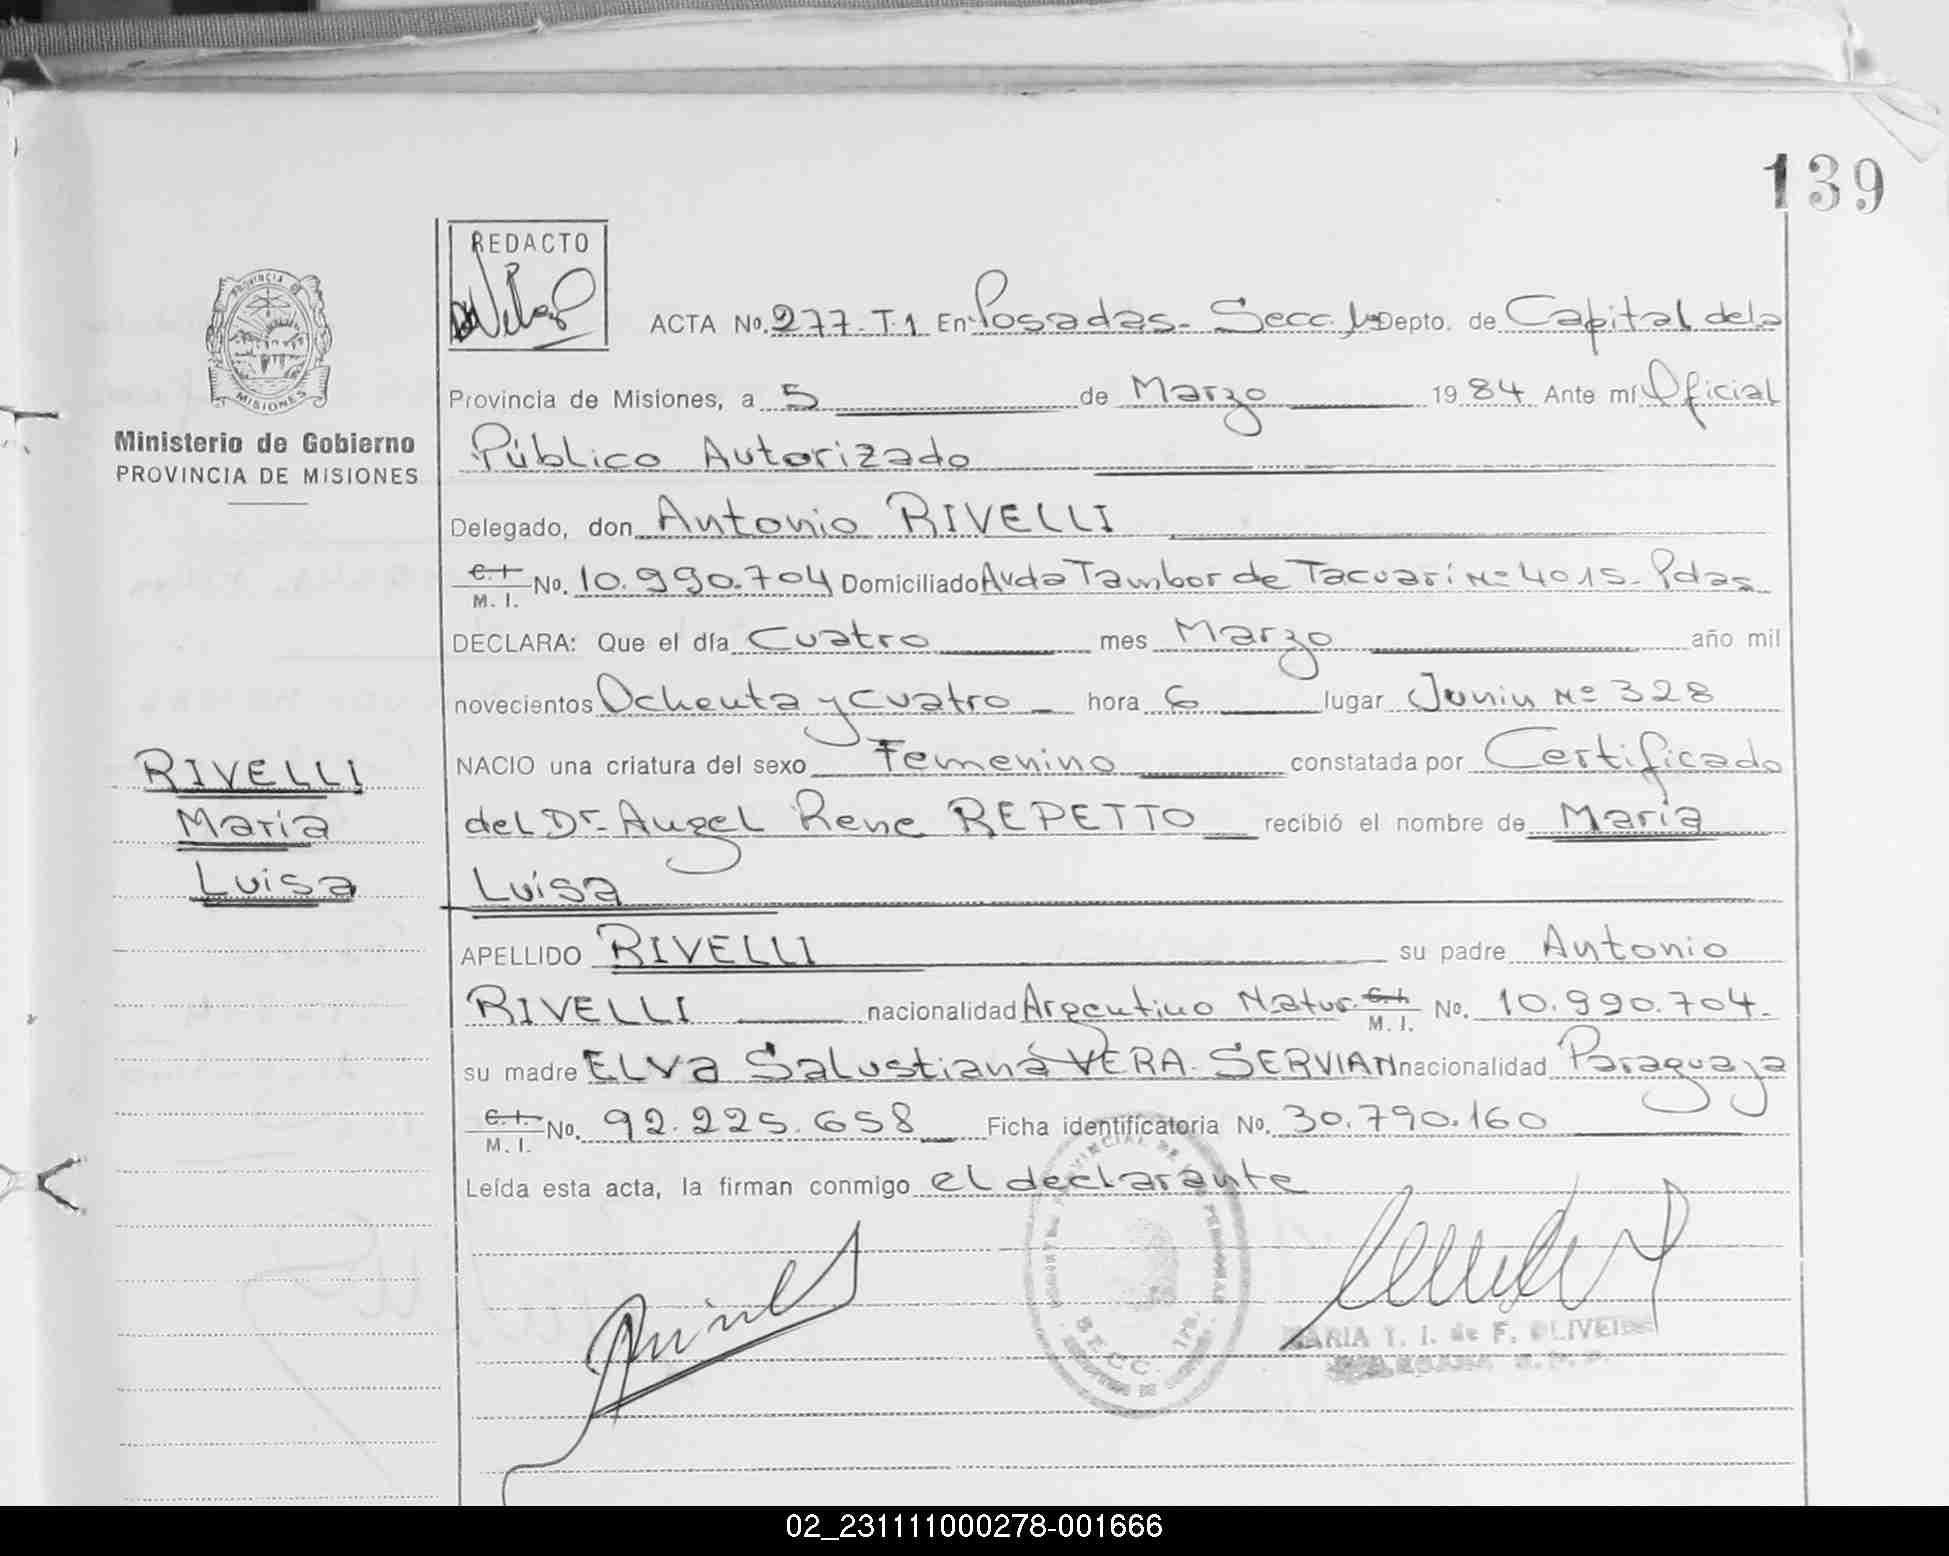 139
REDACTO
ACTA No. 277. T. 1 En Posadas. Secc. 1ª Depto. de Capital de la
Provincia de Misiones, a 5 de Marzo 1984 Ante mí Oficial
Público Autorizado
Delegado, don Antonio RIVELLI
C. I. M. I. No. 10.990.704 Domiciliado Avda Tambor de Tacuarí Nº 4015. Pdas.
DECLARA: Que el día Cuatro mes Marzo año mil
novecientos Ochenta y cuatro hora 6 lugar Junin Nº 328
NACIO una criatura del sexo Femenino constatada por Certificado
del Dr. Angel Rene REPETTO recibió el nombre de María
Luísa
APELLIDO RIVELLI su padre Antonio
RIVELLI nacionalidad Argentino Natur. C. I. M. I. No. 10.990.704.
su madre ELVa Salustiana VERA. SERVIAN nacionalidad Paraguaya
C. I. M. I. No. 92.225.658 Ficha identificatoria No. 30.790.160
Leída esta acta, la firman conmigo el declarante
PROVINCIA DE MISIONES
Ministerio de Gobierno
PROVINCIA DE MISIONES
RIVELLI
María
Luisa
SECC. 1ra.
MARIA T. I. de F. OLIVEIRA
02_231111000278-001666